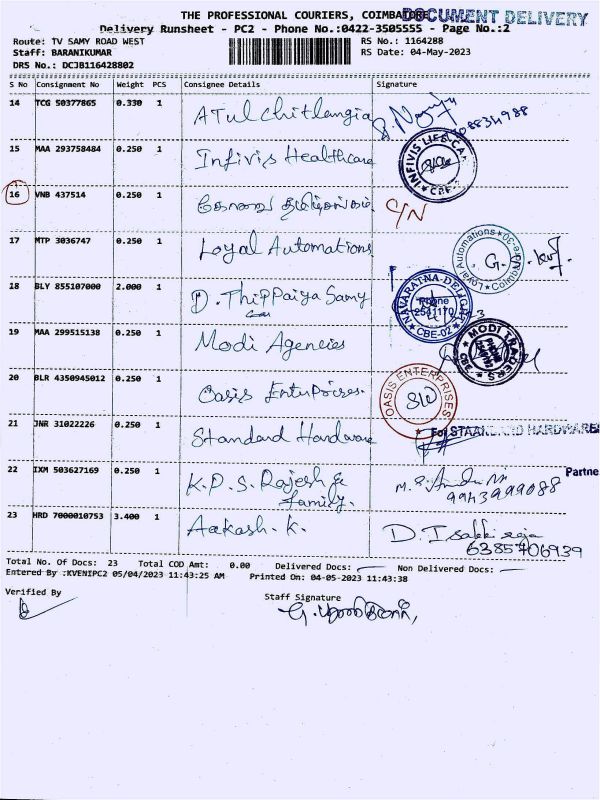 THE PROFESSIONAL COURIERS, COIMBATORE
DOCUMENT DELIVERY
Delivery Runsheet - PC2 - Phone No.:0422-3505555 - Page No.:2
Route: TV SAMY ROAD WEST RS No.: 1164288
Staff: BARANIKUMAR RS Date: 04-May-2023
DRS No.: DCJB116428802
S No Consignment No Weight PCS Consignee Details Signature
14 TCG 50377865 0.330 1 ATul Chitlangia
15 MAA 293758484 0.250 1 Infivis Healthcare
16 VNB 437514 0.250 1 C/N
17 MTP 3036747 0.250 1 Loyal Automations
18 BLY 855107000 2.000 1 D. Thippaiya Samy
NAVARATNA
Phone
2541170
CBE-02
19 MAA 299515138 0.250 1 Modi Agencies
MODI TRADERS
CBE
20 BLR 4350945012 0.250 1 Oasis Enterprises.
OASIS ENTERPRISES
21 JNR 31022226 0.250 1 Standard Hardware
For
HARDWARE
22 IXM 503627169 0.250 1 K.P.S. Rajesh &
family.
Partne
9943999088
23 HRD 7000010753 3.400 1 Aakash. K. D. Isakki raja
6385706939
Total No. Of Docs: 23 Total COD Amt: 0.00 Delivered Docs: Non Delivered Docs:
Entered By :KVENIPC2 05/04/2023 11:43:25 AM Printed On: 04-05-2023 11:43:38
Verified By Staff Signature